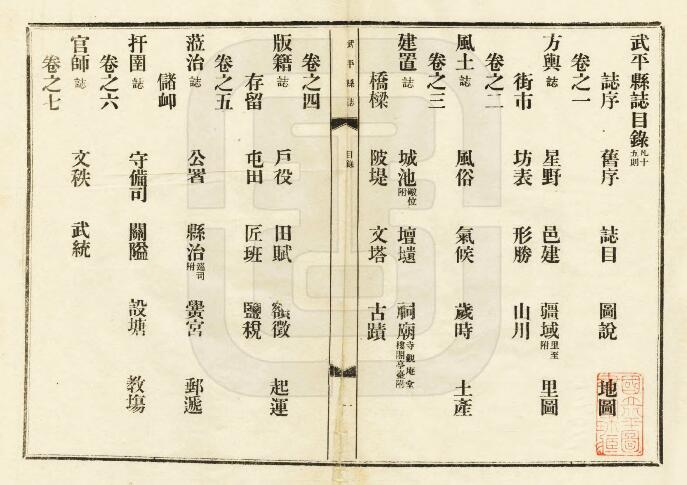 武平縣誌目錄凡十九則
誌序 舊序 誌目 圖說 地圖
卷之一
方輿誌 星野 邑建 疆域里至附 里圖
街市 坊表 形勝 山川
卷之二
風土誌 風俗 氣候 歲時 土產
卷之三
建置誌 城池敵位附 壇壝 祠廟寺觀庵堂樓閣亭臺附
橋樑 陂堤 文塔 古蹟
武平縣誌 目錄 一
卷之四
版籍誌 戶役 田賦 額徵 起運
存留 屯田 匠班 鹽稅
卷之五
蒞治誌 公署 縣治巡司附 黌宮 郵遞
儲卹
扞圉誌 守備司 關隘 設塘 教塲
卷之六
官師誌 文秩 武統
卷之七